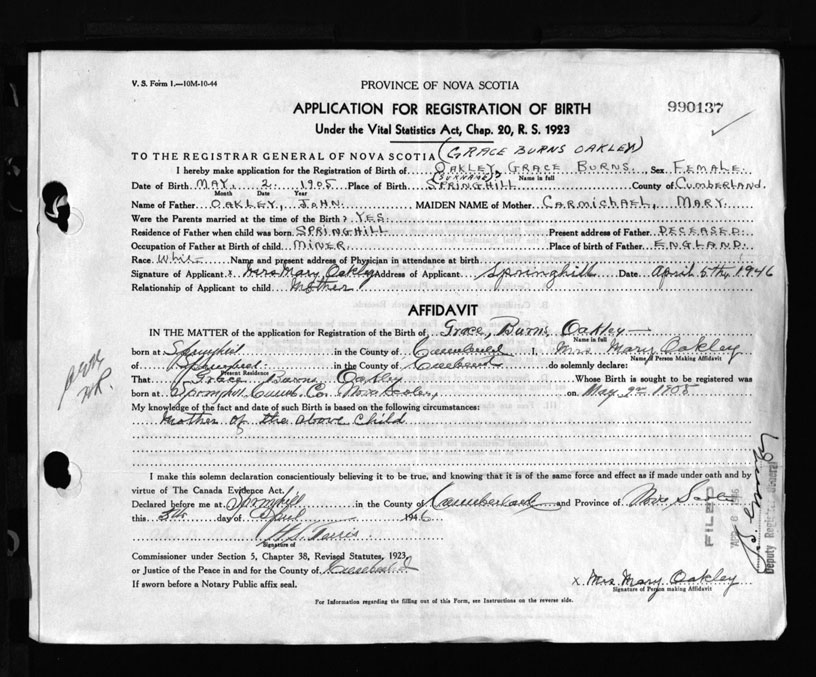 V. S. Form 1.—10M-10-44
PROVINCE OF NOVA SCOTIA
APPLICATION FOR REGISTRATION OF BIRTH
990137
Under the Vital Statistics Act, Chap. 20, R. S. 1923
(GRACE BURNS OAKLEY)
TO THE REGISTRAR GENERAL OF NOVA SCOTIA
I hereby make application for the Registration of Birth of OAKLEY, GRACE BURNS. Sex FEMALE.
(SURNAME) Name in full
Date of Birth MAY. 2. 1905 Place of Birth SPRINGHILL County of CUMBERLAND.
Month Date Year
Name of Father OAKLEY, JOHN. MAIDEN NAME of Mother CARMICHAEL, MARY.
Were the Parents married at the time of the Birth? YES.
Residence of Father when child was born SPRINGHILL Present address of Father DECEASED.
Occupation of Father at Birth of child MINER. Place of birth of Father ENGLAND.
Race White Name and present address of Physician in attendance at birth
Signature of Applicant x Mrs Mary Oakley Address of Applicant Springhill Date April 5th, 1946
Relationship of Applicant to child Mother
AFFIDAVIT
IN THE MATTER of the application for Registration of the Birth of Grace, Burns, Oakley
Name in full
born at Springhill in the County of Cumberland I, Mrs Mary Oakley
Name of Person Making Affidavit
of Springhill in the County of Cumberland do solemnly declare:
Present Residence
That Grace Burns Oakley Whose Birth is sought to be registered was
born at Springhill Cumb. Co. Nova Scotia, on May 2nd 1905
My knowledge of the fact and date of such Birth is based on the following circumstances:
Mother of the above Child
I make this solemn declaration conscientiously believing it to be true, and knowing that it is of the same force and effect as if made under oath and by
virtue of The Canada Evidence Act.
Declared before me at Springhill in the County of Cumberland and Province of Nova Scotia
this 5th day of April 1946
Signature of
Commissioner under Section 5, Chapter 38, Revised Statutes, 1923
or Justice of the Peace in and for the County of Cumberland
If sworn before a Notary Public affix seal.
x Mrs. Mary Oakley
Signature of Person making Affidavit
For Information regarding the filling out of this Form, see Instructions on the reverse side.
FILED
Deputy Registrar General